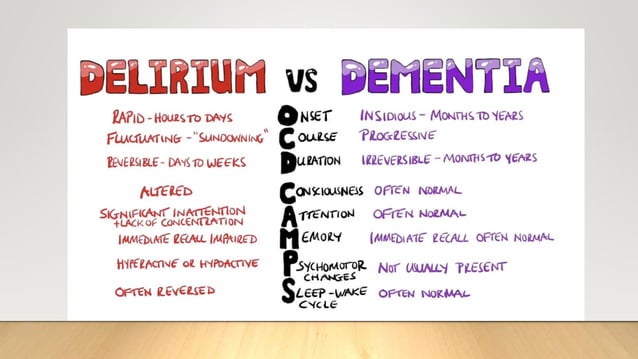 DELIRIUM vs DEMENTIA
RAPID - HOURS TO DAYS ONSET INSIDIOUS - MONTHS TO YEARS
FLUCTUATING - "SUNDOWNING" COURSE PROGRESSIVE
REVERSIBLE - DAYS TO WEEKS DURATION IRREVERSIBLE - MONTHS TO YEARS
ALTERED CONSCIOUSNESS OFTEN NORMAL
SIGNIFICANT INATTENTION ATTENTION OFTEN NORMAL
+ LACK OF CONCENTRATION
IMMEDIATE RECALL IMPAIRED MEMORY IMMEDIATE RECALL OFTEN NORMAL
HYPERACTIVE OR HYPOACTIVE PSYCHOMOTOR NOT USUALLY PRESENT
CHANGES
OFTEN REVERSED SLEEP-WAKE OFTEN NORMAL
CYCLE